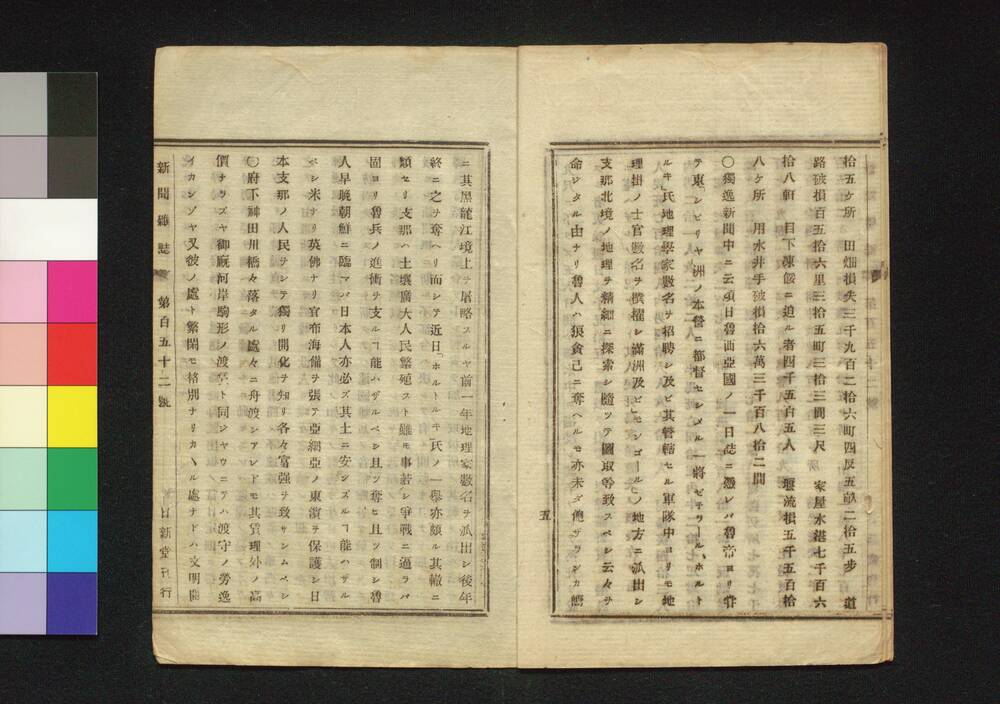 拾五ケ所　田畑損失三千九百二拾六町四反五畝二拾五步　道
路破損百五拾六里三拾五町三拾三間三尺　家屋水湛七千百六
拾八軒　目下凍餒ニ迫ル者四千五百五人　堰流損五千五百拾
八ケ所　用水井手破損拾六萬三千百八拾二間
〇獨逸新聞中ニ云ク頃日魯西亞國ノ一日誌ニ憑レバ魯帝ヨリ嘗
テ東「シビリヤ洲ノ本營ニ都督セシメル一將ゼ子ラール、ホルト
ルキ」氏地理學家數名ヲ招聘シ及ビ其管轄セル軍隊中ヨリモ地
理掛ノ士官數名ヲ撰擢シ滿洲及ビ「モンゴール」ノ地方ニ派出シ
支那北境ノ地理ヲ精細ニ探索シ隨ツテ圖取等致スベシ云々ヲ
命ジタル由ナリ魯人ハ狼貪己ニ奪ヘルモ亦未ダ飽ザランカ嚮
五
ニ其黑龍江境上ヲ屠略スルヤ前一年地理家數名ヲ派出シ後年
終ニ之ヲ奪ヘリ而シテ近日「ホルトルキ」氏ノ一擧亦頗ル其轍ニ
類セリ支那ハ土壤廣大人民繁殖スト雖モ事若シ爭戰ニ逼ラバ
固ヨリ魯兵ノ進衝ヲ支ルヿ能ハザルベシ且ツ奪ヒ且ツ制シ魯
人早晩朝鮮ニ臨マバ日本人亦必ズ其土ニ安ンズルヿ能ハザル
ベシ米ナリ英佛ナリ官布海備ヲ張テ亞細亞ノ東濱ヲ保護シ日
本支那ノ人民ヲシテ獨リ開化ヲ知リ各々富强ヲ致サシムベシ
〇府下神田川橋々落タル處々ニ舟渡シアレドモ其賃理外ノ高
價ナラズヤ御厩河岸駒形ノ渡等ト同ジヤウニテハ渡守ノ勞逸
イカンゾヤ又彼ノ處ト繁閑モ格別ナリカヽル處ナドハ文明開
新聞雜誌　第百五十二號　日新堂刊行